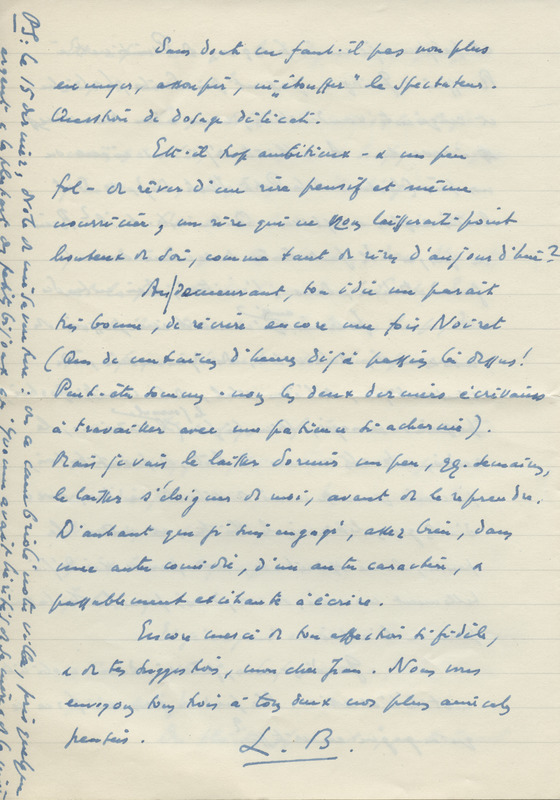 Sans doute ne faut-il pas non plus
ennuyer, assoupir, ni "étouffer" le spectateur.
Question de dosage délicat.
Est-il trop ambitieux - & un peu
fol - de rêver d'une rire pensif et même
nourricier, un rire qui ne nous laisserait point
honteux de soi, comme tant de rires d'aujourd'hui?
Au demeurant, ton idée me paraît
très bonne, de récrire encore une fois Noiret
(Que de centaines d'heures déjà passées là-dessus!
Peut-être sommes-nous les deux derniers écrivains
à travailler avec une patience si acharnée).
Mais je vais le laisser dormir un peu, qq. semaines,
le laisser s'éloigner de moi, avant de le reprendre.
D'autant que je suis engagé, assez bien, dans
une autre comédie, d'un autre caractère, &
passablement excitante à écrire.
Encore merci de ton affection si fidèle,
& de tes suggestions, mon cher Jean. Nous vous
envoyons tous trois à tous deux nos plus amicales
pensées.
L. B.
PS: Le 15 dernier, drôle de mésaventure: on a cambriolé notre villa, pris quelque
argent & la plupart des petits bijoux que avait hérités de sa mère